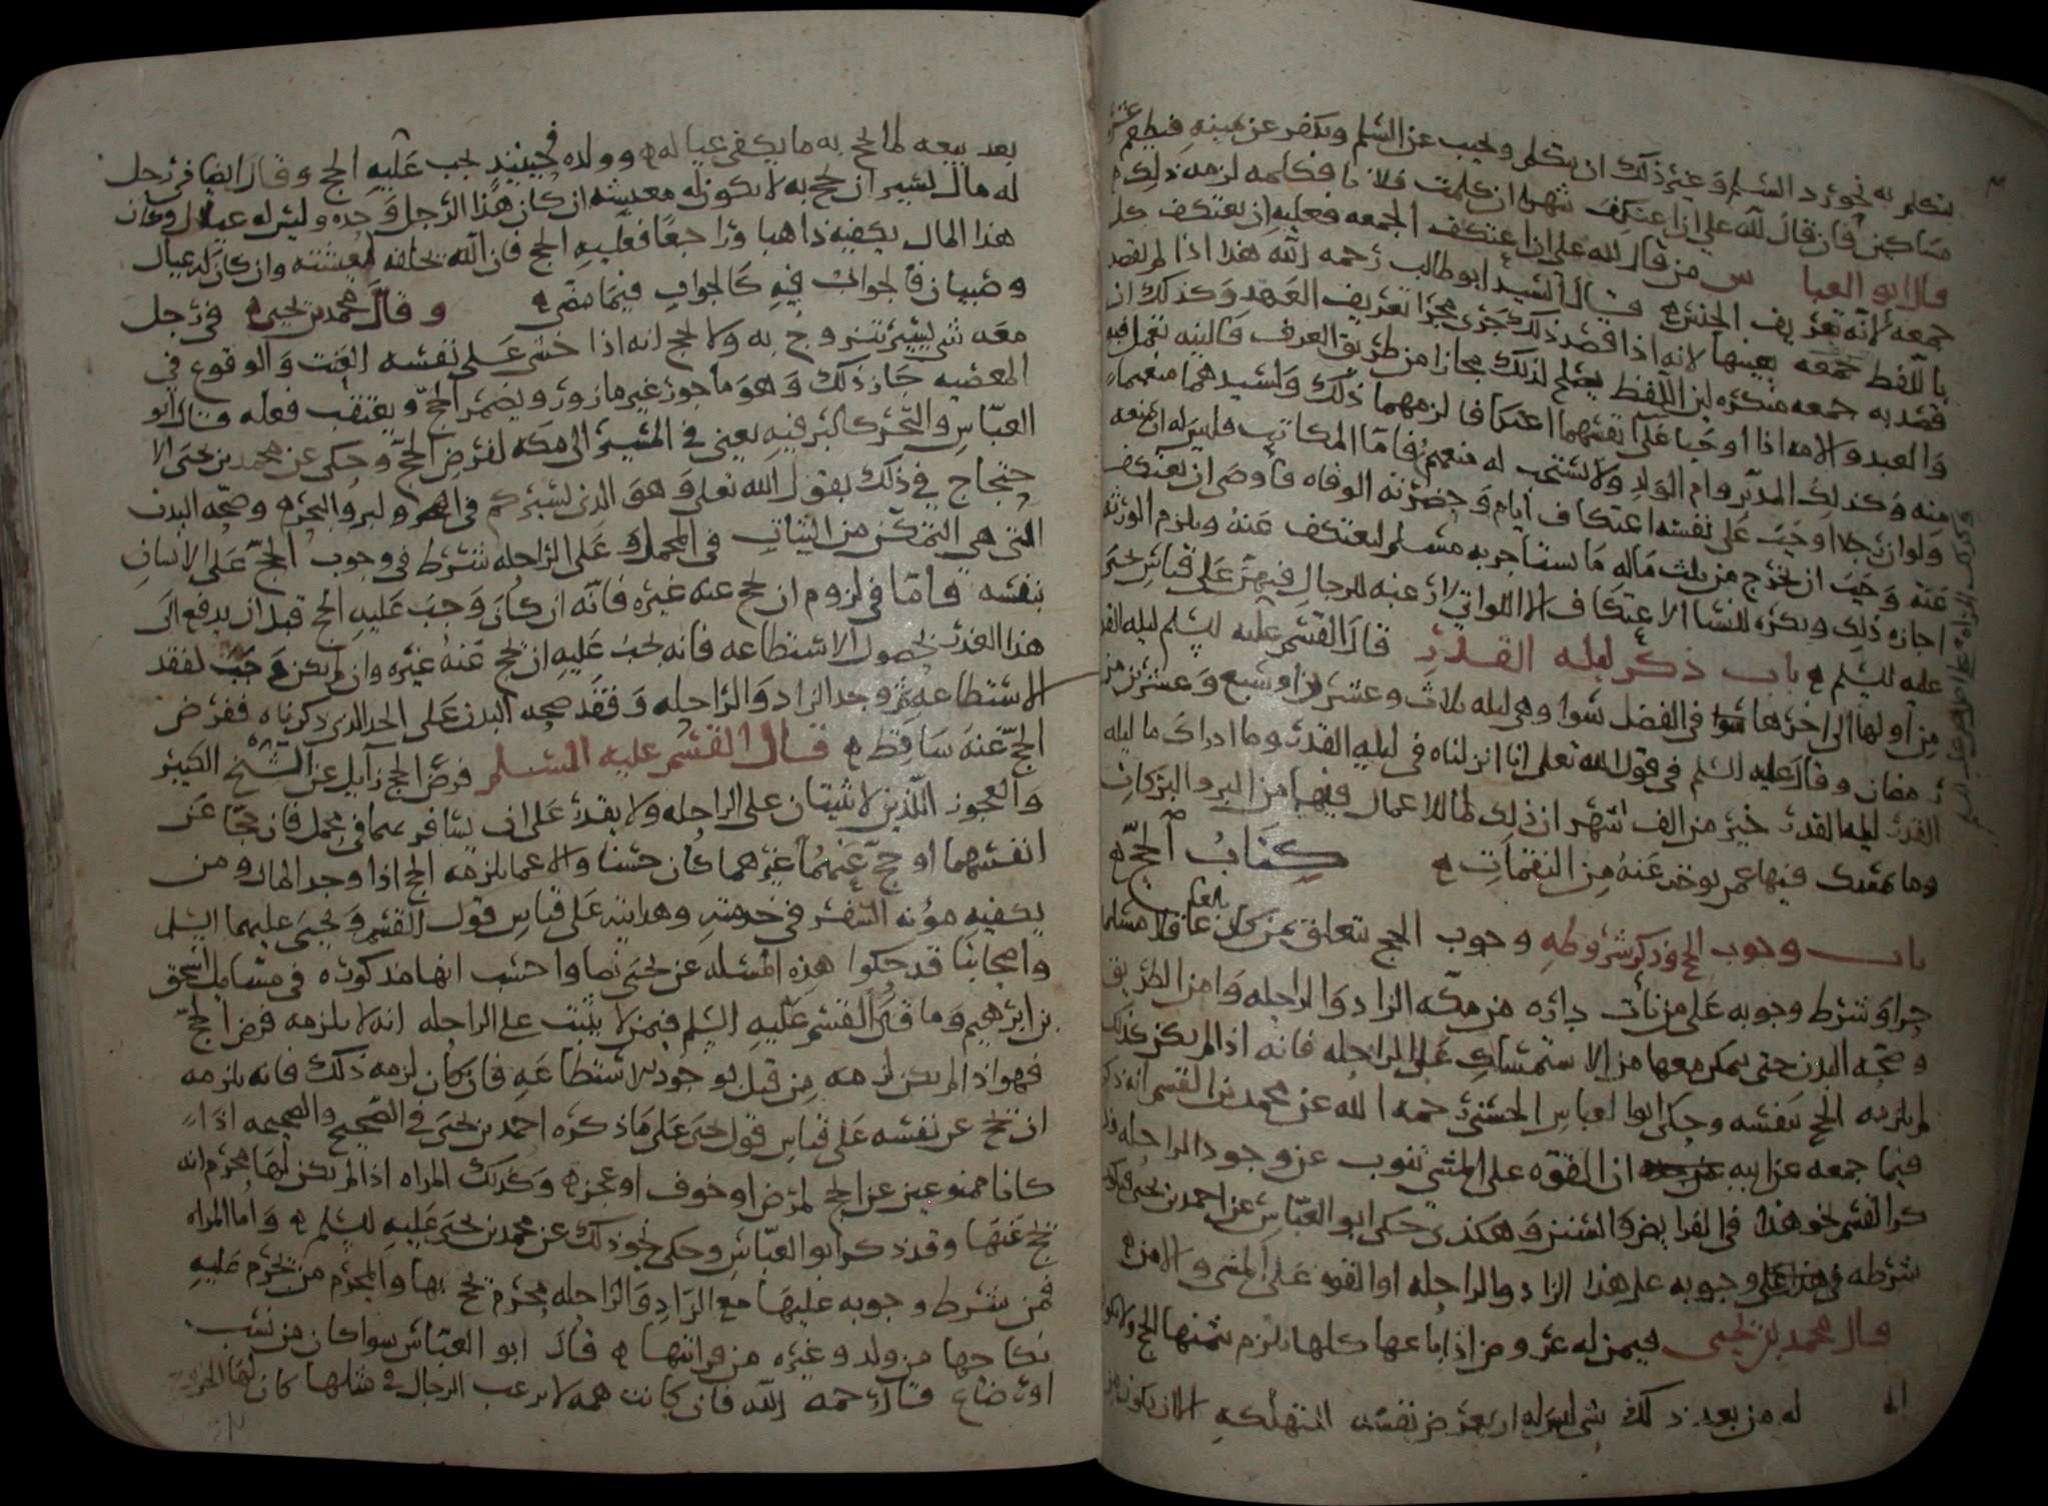 يتكلم به نحو رد السلم وغير ذلك ان يتكلم ويجيب عن السلم ويكفر عن يمينه فيطعم عشرة
مساكين فان قال لله علي ان اعتكف شهرا ان كلمت فلانا فكلمه لزمه ذلك
قال ابو العباس من قال لله علي ان اعتكف الجمعه فعليه ان يعتكف كل
جمعه لانه تعريف الجنس قال السيد ابو طالب رحمه الله هذا اذا لم يقصد
باللفظ جمعه بعينها لانه اذا قصد ذلك جرى مجرا تعريف العهد وكذلك ان
قصد به جمعه منكره لان اللفظ يصلح لذلك مجازا من طريق العرف فالنيه تعمل فيه
والعبد والامه اذا اوجبا على انفسهما اعتكافا لزمهما ذلك ولسيدهما منعهما
منه وكذلك المدبر وام الولد ولا يستحب له منعهم فاما المكاتب فليس له ان يمنعه
ولو ان رجلا اوجب على نفسه اعتكاف ايام وحضرته الوفاه فاوصى ان يعتكف
عنه وجب ان يخرج من ثلث ماله ما يستاجر به مسلم ليعتكف عنه ويلزم الورثه
اجازه ذلك ويكره للنسا الاعتكاف الا اللواتي لا رغبه للرجال فيهن على قياس يحيى
عليه السلم باب ذكر ليله القدر قال القسم عليه السلم ليله القدر
من اولها الى اخرها في الفضل سوا وهي ليله ثلاث وعشرين او سبع وعشرين من
رمضان وقال عليه السلم في قول الله تعلى انا انزلناه في ليله القدر وما ادراك ما ليله
القدر ليله القدر خير من الف شهر ان ذلك لما للاعمال فيها من البر والبركات
وما فيها عمن يوخذ عنه من النقمات كتاب الحج
باب وجوب الحج وذكر شروطه وجوب الحج يتعلق بمن كان بالغا عاقلا مسلما
حرا وشرط وجوبه على من نأت داره من مكه الزاد والراحله وامن الطريق
وصحه البدن حتى يتمكن معها من الاستمساك على الراحله فانه اذا لم يكن كذلك
لم يلزمه الحج بنفسه وحكى ابوا لعباس الحسني رحمه الله عن محمد بن القسم انه ذكر
فيما جمعه عن ابيه ان القوه على المشي تنوب عن وجود الراحله
ذكر القسم نحو هذا في الفرايض والسنن وهكذى حكى ابو العباس عن احمد بن يحيى
شرطه وجوبه على هذا الزاد والراحله او القوه على المشي والامن
قال محمد بن يحيى فيمن له عروض اذا باعها كلها لزم ثمنها الحج ولا
له من بعد ذلك شي ليس له ان يعرض نفسه للتهلكه الا ان يكون
بعد بيعه لما يحج به ما يكفي عياله وولده فحينيذ يجب عليه الحج وقال ايضا في رجل
له مال يسير ان يحج به لا يكون له معيشه ان كان هذا الرجل وحده وليس له عيال وكان
هذا المال يكفيه ذاهبا وراجعا فعليه الحج فان الله يخلفه لمعيشته وان كان له عيال
وصبيان فالجواب فيه كالجواب فيما مضى وقال محمد بن يحيى في رجل
معه شي يسير يتزوج به ولا يحج انه اذا خشي على نفسه العنت والوقوع في
المعصيه جاز ذلك وهو ماجور غير مازور ويضمر الحج ويعتقب فعله قال ابو
العباس والتحرك البر فيه يعني في المسير الى مكه لفرض الحج وحكى عن محمد بن يحيى الا
حتجاج في ذلك بقول الله تعلى وهو الذي يسيركم في البر والبحر وصحه البدن
التي هي التمكن من الثبات في المحمل وعلى الراحله شرط في وجوب الحج على الانسان
بنفسه فاما في لزوم ان يحج عنه غيره فانه ان كان وجب عليه الحج قبل ان يدفع الى
هذا العذر لحصول الاستطاعه فانه يجب عليه ان يحج عنه غيره وان لم يكن وجب لفقد
الاستطاعه ثم وجد الزاد والراحله وفقد صحه البدن على الحد الذي ذكرناه ففرض
الحج عنه ساقط قال القسم عليه السلم فرض الحج زايل عن الشيخ الكبير
والعجوز اللذين لا يثبتان على الراحله ولا يقدر على ان يسافر بهما في محمل فان حجا عن
انفسهما او حج عنهما غيرهما كان حسنا والاعما يلزمه الحج اذا وجد المال ومن
يكفيه مؤنه السفر في خدمته وهدايته على قياس قول القسم ويحيى عليهما السلم
واصحابنا قد حكوا هذه المسله عن يحيى نصا واحسب انها مذكوره في مسايل اسحق
بن ابرهيم وما قال القسم عليه السلم فيمن لا يثبت على الراحله انه لا يلزمه فرض الحج
فهو اذا لم يكن لزمه من قبل لوجود الاستطاعه فان كان لزمه ذلك فانه يلزمه
ان يحج عن نفسه على قياس قول يحيى على ما ذكره احمد بن يحيى في الصحيح والصحيحه اذا
كانا ممنوعين عن الحج لمرض او خوف او عجز وكذلك المراه اذا لم يكن لها محرم انه
يحج عنها وقد ذكر ابو العباس وحكى نحو ذلك عن محمد بن يحيى عليه السلم واما المراه
فمن شرط وجوبه عليها مع الزاد والراحله محرم يحج بها والمحرم من يحرم عليه
نكاحها من ولد وغيره من قرابتها قال ابو العباس سوا كان من نسب
او رضاع قال رحمه الله فان كانت همه لا يرغب الرجال في مثلها كان لها الخروج